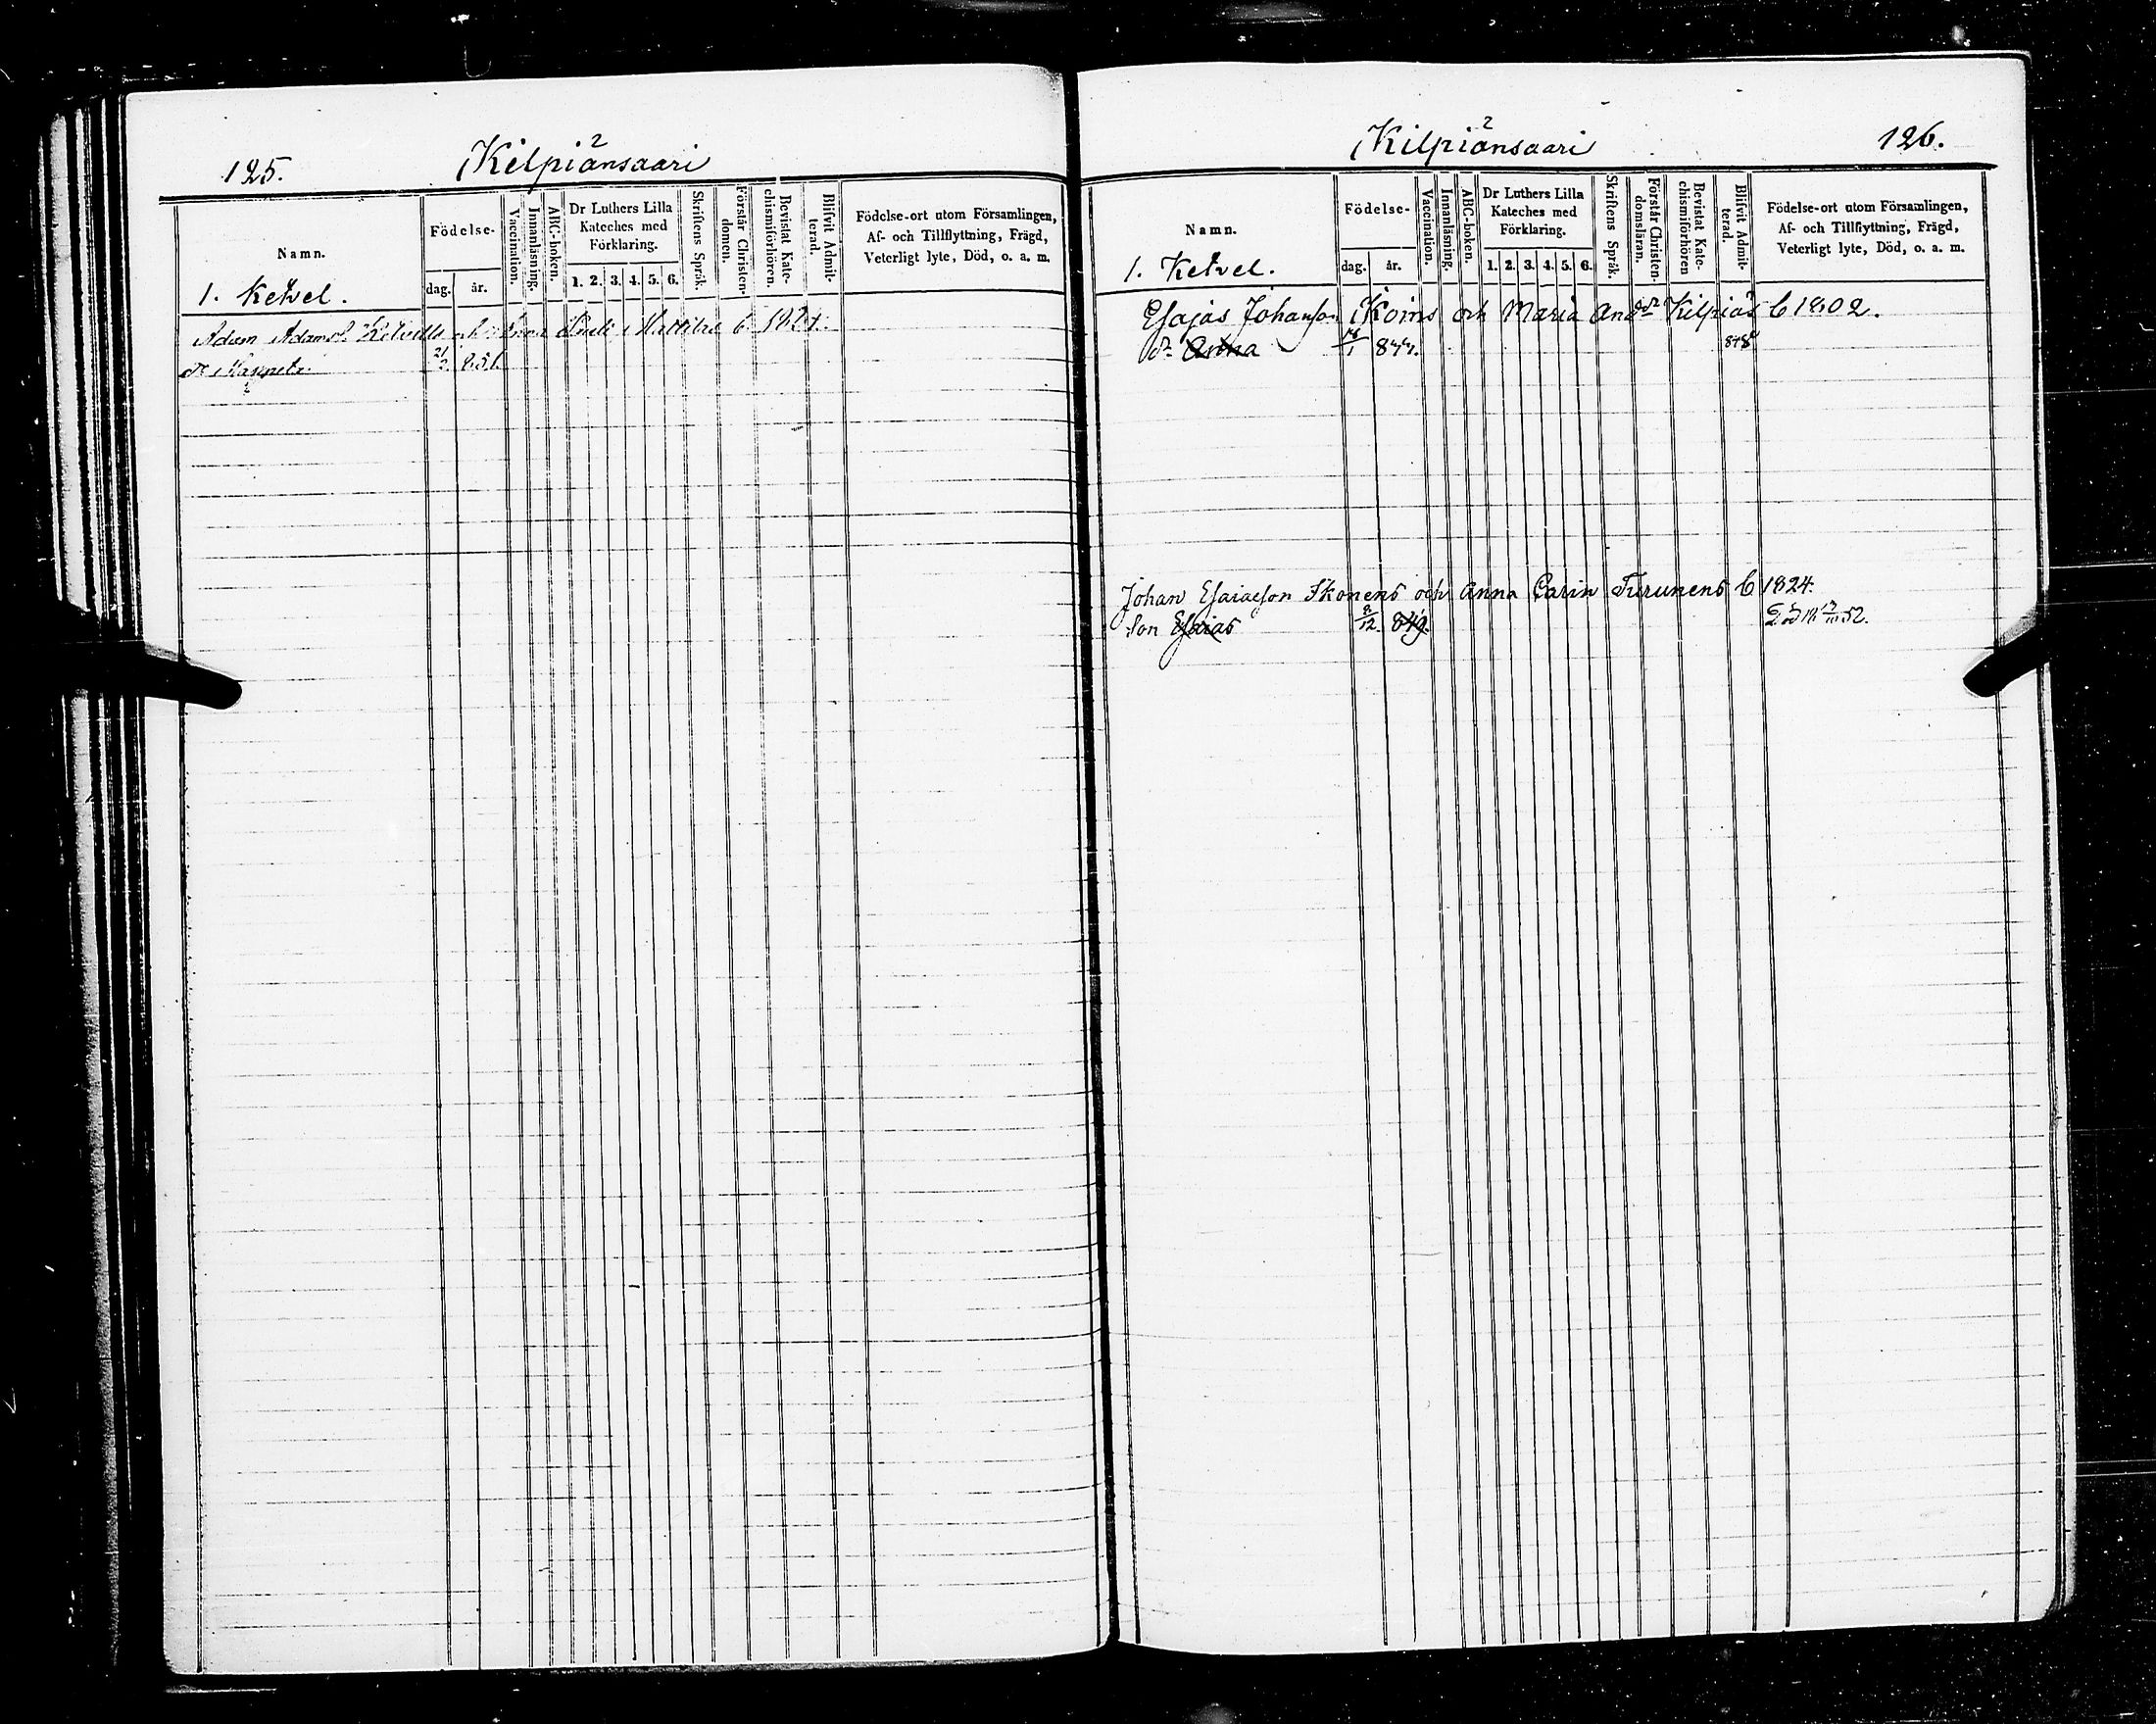 125.
2
Kilpiänsaari
Namn.
Födelse-
dag.
år.
Vaccination.
Innanläsning.
ABC-boken.
Dr Luthers Lilla
Kateches med
Förklaring.
1. 2. 3. 4. 5. 6.
Skriftens Språk.
Förstår Christen-
domen.
Bevistat Kate-
chismiförhören.
Blifvit Admit-
terad.
Födelse-ort utom Församlingen,
Af- och Tillflyttning, Frägd,
Veterligt lyte, Död, o. a. m.
1. Ketvel.
Adam Adams Ketvells och Anna i Mattila C 1824.
21/2 851.
2
Kilpiänsaari
126.
Namn.
Födelse-
dag.
år.
Vaccination.
Innanläsning.
ABC-boken.
Dr Luthers Lilla
Kateches med
Förklaring.
1. 2. 3. 4. 5. 6.
Skriftens Språk.
Förstår Christen-
domsläran.
Bevistat Kate-
chismiförhören
Blifvit Admit-
terad.
Födelse-ort utom Församlingen,
Af- och Tillflyttning, Frägd,
Veterligt lyte, Död, o. a. m.
1. Ketvel.
Esajas Johanson Ikoins och Maria And dr Kilpiäs C 1802.
dr Anna 844. 878
Johan Esaiaeson Ikonens och Anna Carin Turunens C 1824.
Son Esaias 849. Död 52.